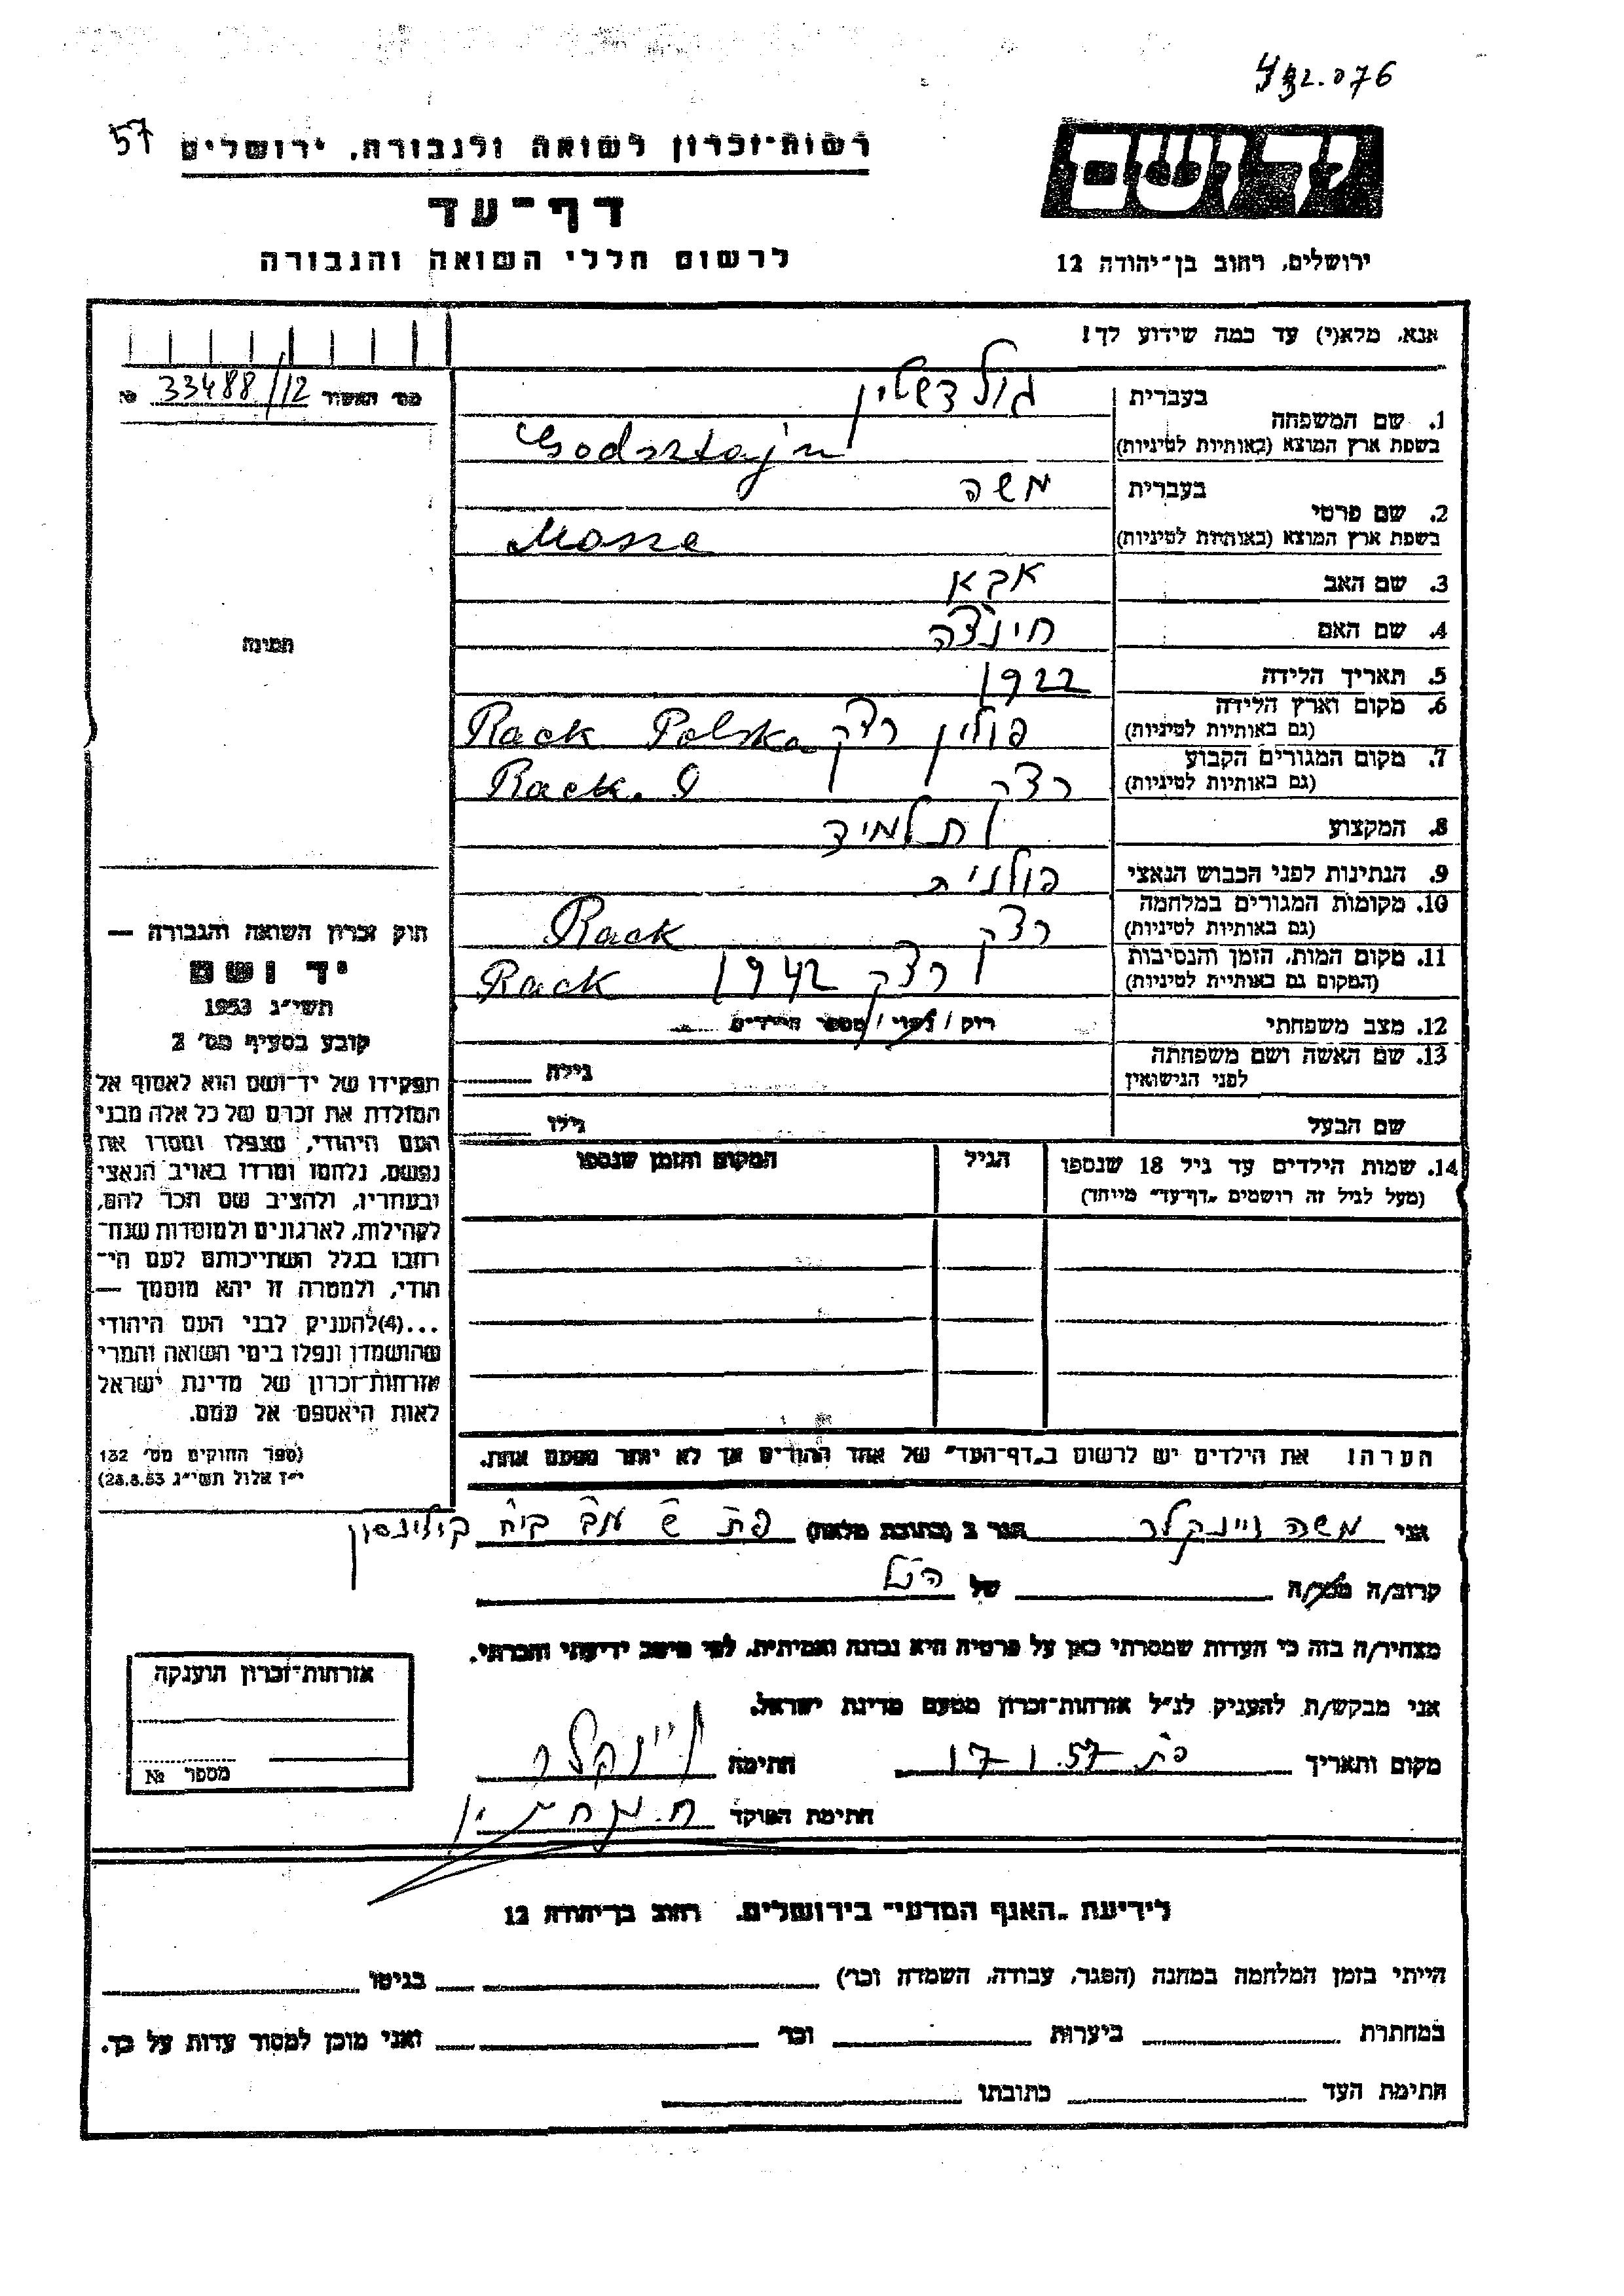 432.076
57
רשות־זכרון לשואה ולגבורה, ירושלים
יד ושם
דף־עד
לרשום חללי השואה והגבורה
ירושלים, רחוב בן־יהודה 12
אנא, מלא(י) עד כמה שידוע לך!
מס' האשור 33488/12 №
1. שם המשפחה בעברית גולדשטין
בשפת ארץ המוצא (באותיות לטיניות) Godsztajn
2. שם פרטי בעברית משה
בשפת ארץ המוצא (באותיות לטיניות) Mosze
3. שם האב אבא
4. שם האם חינצה
5. תאריך הלידה 1922
6. מקום וארץ הלידה (גם באותיות לטיניות) פולין רצק Rack Polska
7. מקום המגורים הקבוע (גם באותיות לטיניות) רצק Rack.
8. המקצוע תלמיד
9. הנתינות לפני הכבוש הנאצי פולנית
10. מקומות המגורים במלחמה (גם באותיות לטיניות) רצק Rack
11. מקום המות, הזמן והנסיבות (המקום גם באותיות לטיניות) רצק 1942 Rack
12. מצב משפחתי רוק / נשוי / מספר הילדים
13. שם האשה ושם משפחתה לפני הנישואין גילה
שם הבעל גילו
14. שמות הילדים עד גיל 18 שנספו הגיל המקום והזמן שנספו
(מעל לגיל זה רושמים „דף־עד” מיוחד)
הערה! את הילדים יש לרשום ב„דף־העד” של אחד ההורים אך לא יותר מפעם אחת.
תמונה
חוק זכרון השואה והגבורה —
יד ושם
תשי״ג 1953
קובע בסעיף מס' 2
תפקידו של יד־ושם הוא לאסוף אל
המולדת את זכרם של כל אלה מבני
העם היהודי, שנפלו ומסרו את
נפשם, נלחמו ומרדו באויב הנאצי
ובעוזריו, ולהציב שם וזכר להם,
לקהילות, לארגונים ולמוסדות שנח־
רבו בגלל השתייכותם לעם הי־
הודי, ולמטרה זו יהא מוסמך —
...(4)להעניק לבני העם היהודי
שהושמדו ונפלו בימי השואה והמרי
אזרחות־זכרון של מדינת ישראל
לאות היאספם אל עמם.
(ספר החוקים מס' 132
י״ז אלול תשי״ג 28.8.53)
אני משה ויינקלר הגר ב (כתובת מלאה) פת ביח בילינסון
קרוב/ה מכר/ה של הנ״ל
מצהיר/ה בזה כי העדות שמסרתי כאן על פרטיה היא נכונה ואמיתית, לפי מיטב ידיעתי והכרתי.
אני מבקש/ת להעניק לנ״ל אזרחות־זכרון מטעם מדינת ישראל.
מקום ותאריך פת 17.1.57 חתימה ויינקלר
חתימת הפוקד
אזרחות־זכרון הוענקה
מספר №
לידיעת „האגף המדעי” בירושלים, רחוב בן־יהודה 12
הייתי בזמן המלחמה במחנה (הסגר, עבודה, השמדה וכו') בגיטו
במחתרת ביערות וכו' ואני מוכן למסור עדות על כך.
חתימת העד כתובתו